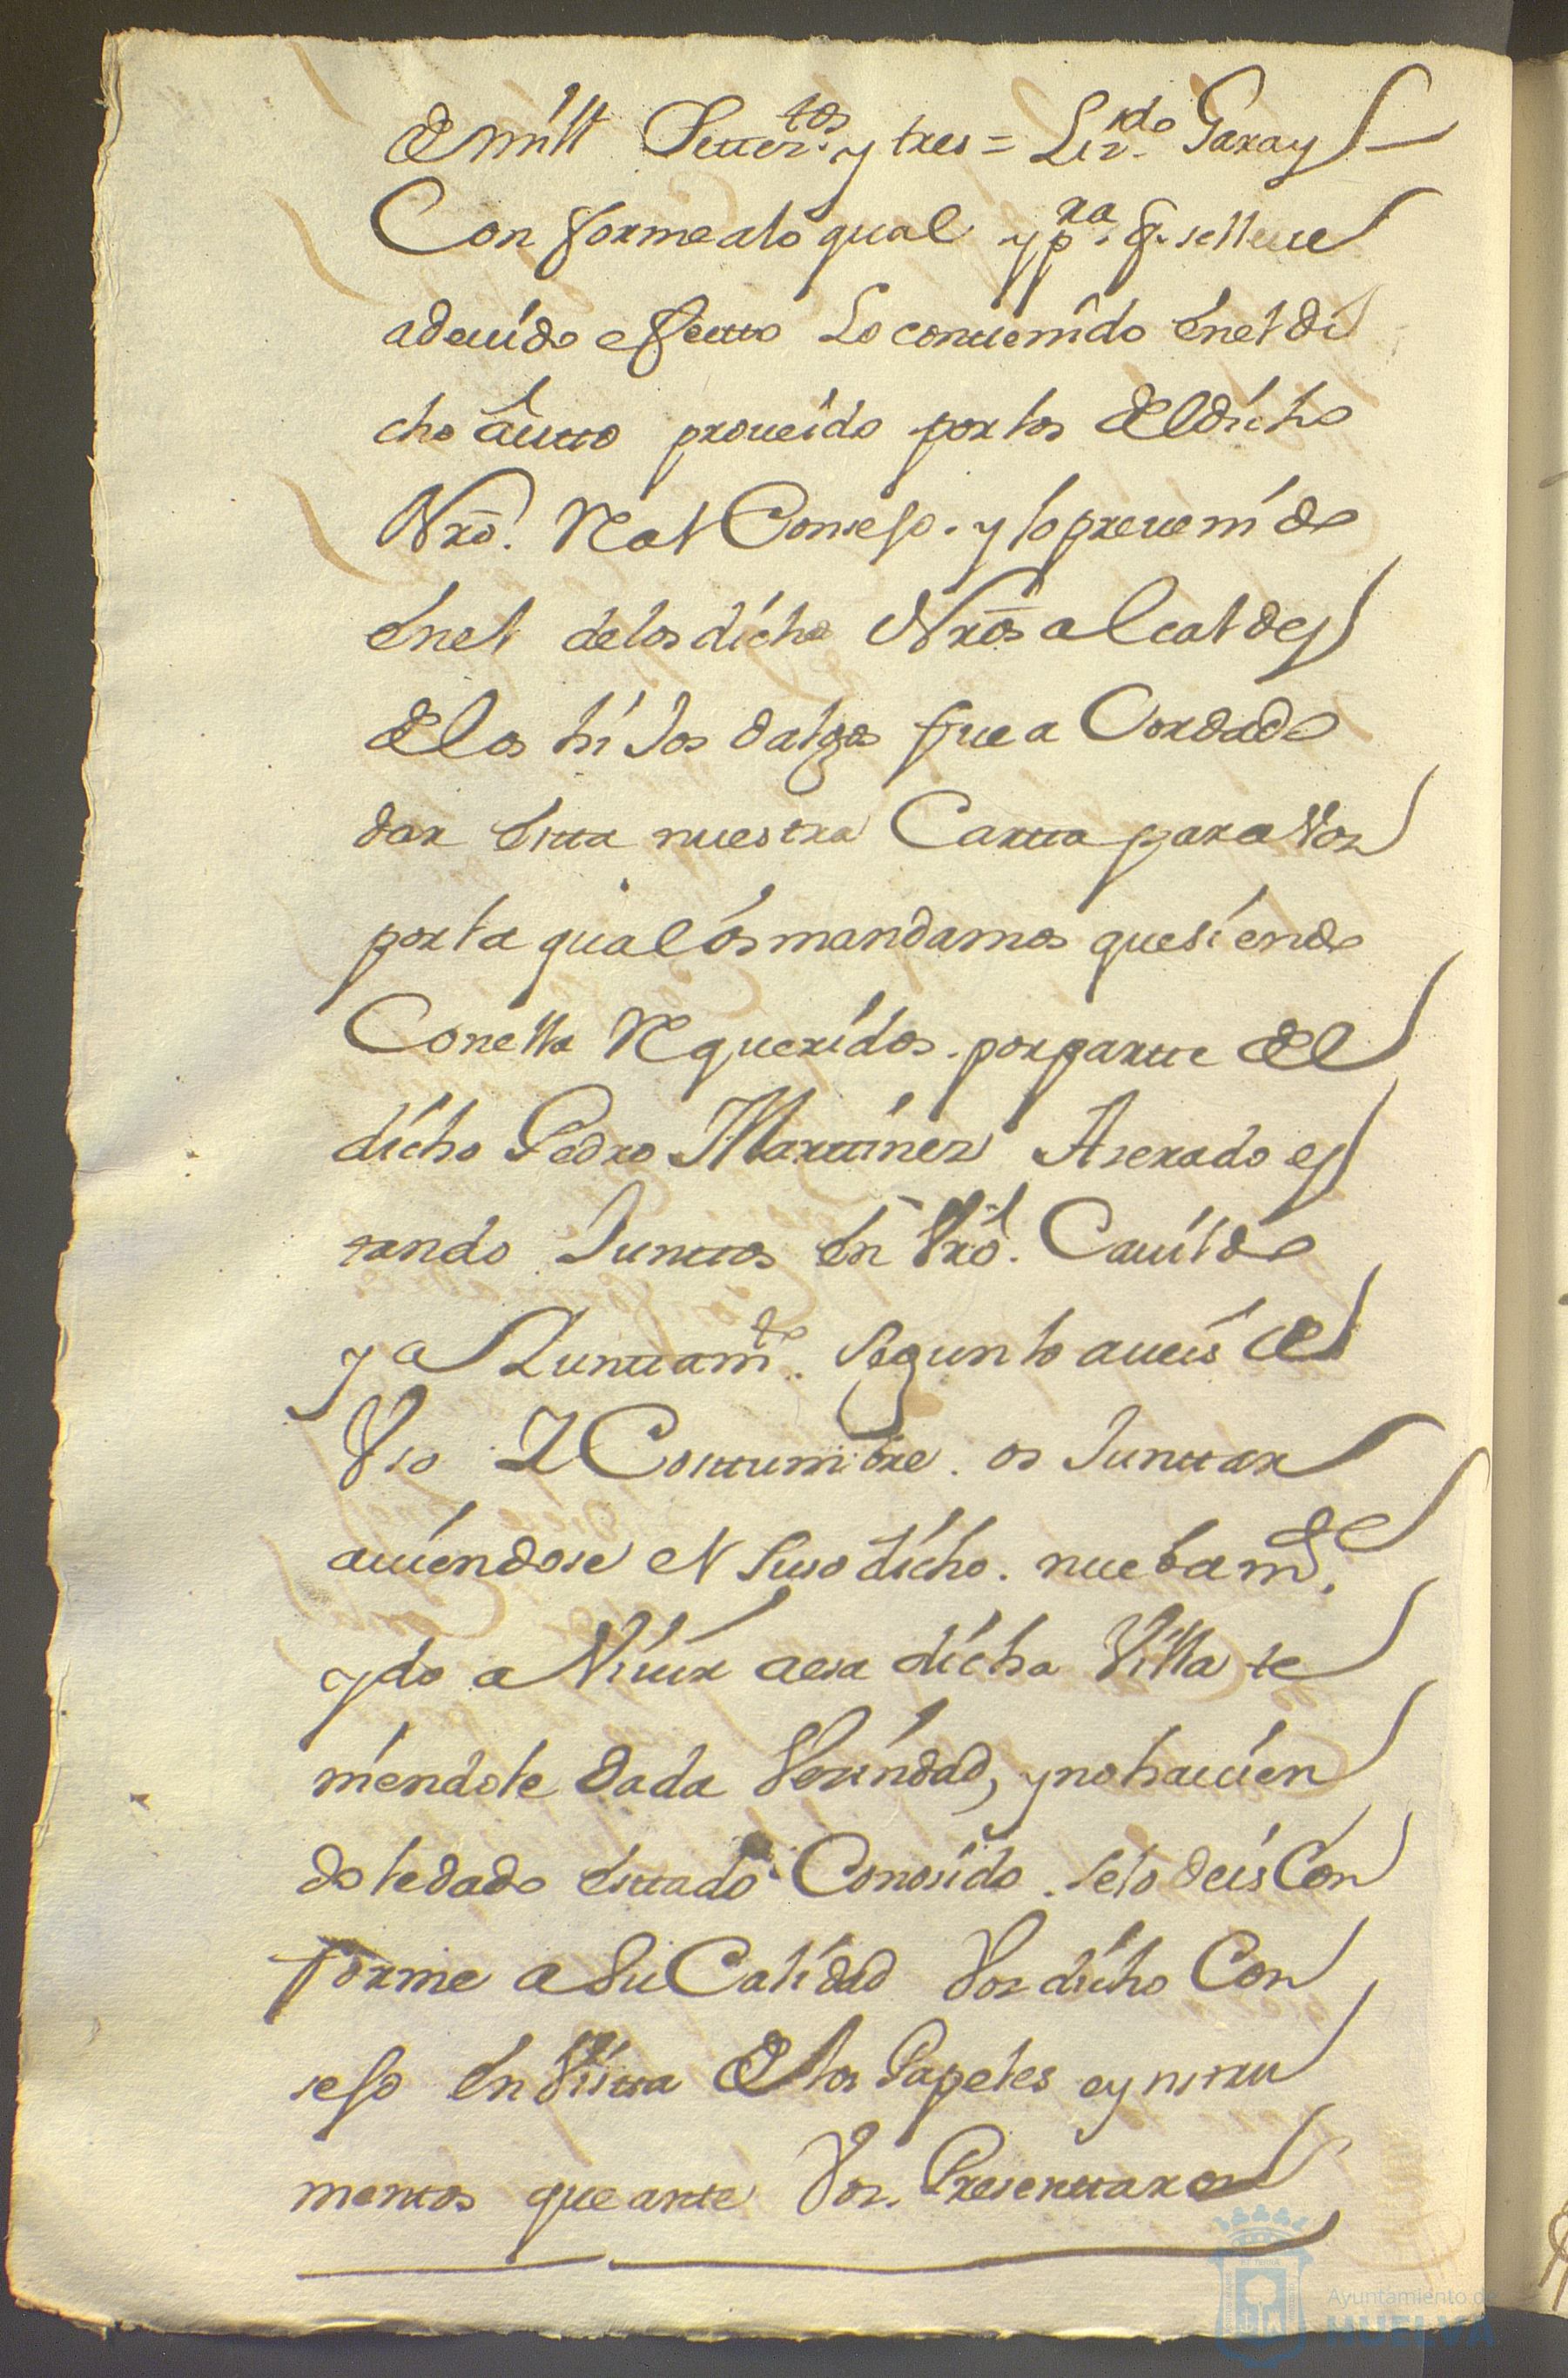 de mill Settez.tos y tres = Lizdo. Garay
Conforme a lo qual y p.ra q. se lleue
a deuido efectto Lo conttenido en el di
cho autto proueido por los del dicho
Nro. Real Consejo. y lo preuenido
en el de los dichos Nros alcaldes
de los hijos dalgo fue acordado
dar estta nuestra Cartta para Vos
por la qual os mandamos que siendo
Con ella Requeridos. por partte del
dicho Pedro Marttinez Aserado es
tando Junttos en Vro. Cauildo
y aJunttam.to Segun lo aueis de
Vso Y Costtumbre. os Junttar
auiendose el Susodicho. nuebam.te
ydo a Viuir a esa dicha Villa te
niendole dada Vezindad, y no hauien
dole dado esttado Conosido. Se lo deis Con
forme a Su Calidad Vos dicho Con
sejo en Vistta de los Papeles e ynstru
menttos que ante Vos. Presenttare
Ayuntamiento de
HUELVA